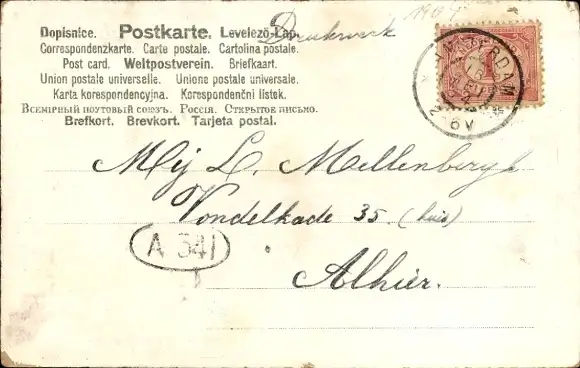 Dopisnice. Postkarte. Levelezö-Lap.
Drukwerk
1904
Correspondenzkarte. Carte postale. Cartolina postale.
Post card. Weltpostverein. Briefkaart.
Union postale universelle. Unione postale universale.
Karta korespondencyjna. Korespondenční lístek.
Всемірный почтовый союзъ. Россія. Открытое письмо.
Brefkort. Brevkort. Tarjeta postal.
AMSTERDAM
1
2-6V
Mej L. Mellenbergh
Vondelkade 35. (huis)
A 341
Alhier.